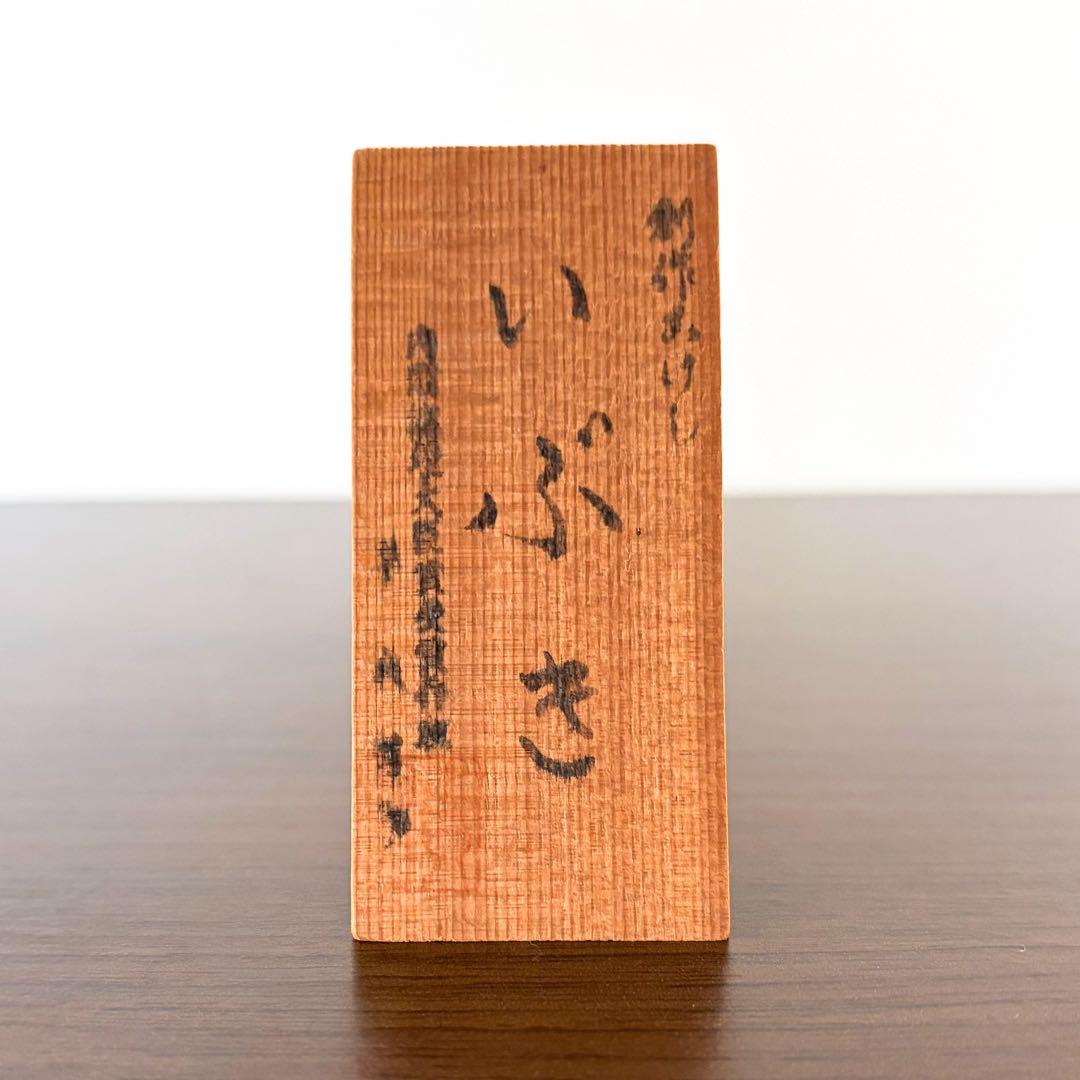 創作こけし
いぶき
内閣総理大臣賞受賞作家